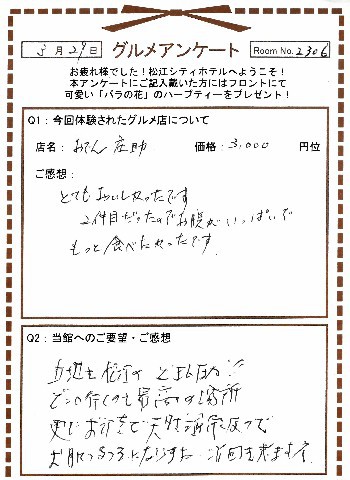 5月29日 グルメアンケート Room No. 2306
お疲れ様でした！松江シティホテルへようこそ！
本アンケートにご記入戴いた方にはフロントにて
可愛い「バラの花」のハーブティーをプレゼント！
Q1：今回体験されたグルメ店について
店名：おでん 庄助 価格：3,000 円位
ご感想：
とてもおいしかったです
2件目だったのでお腹がいっぱいで
もっと食べたかったです。
Q2：当館へのご要望・ご感想
立地も松江の
どこへ行くのも最高の場所
更にお行
お肌つるつるになりますね 次回も来ます